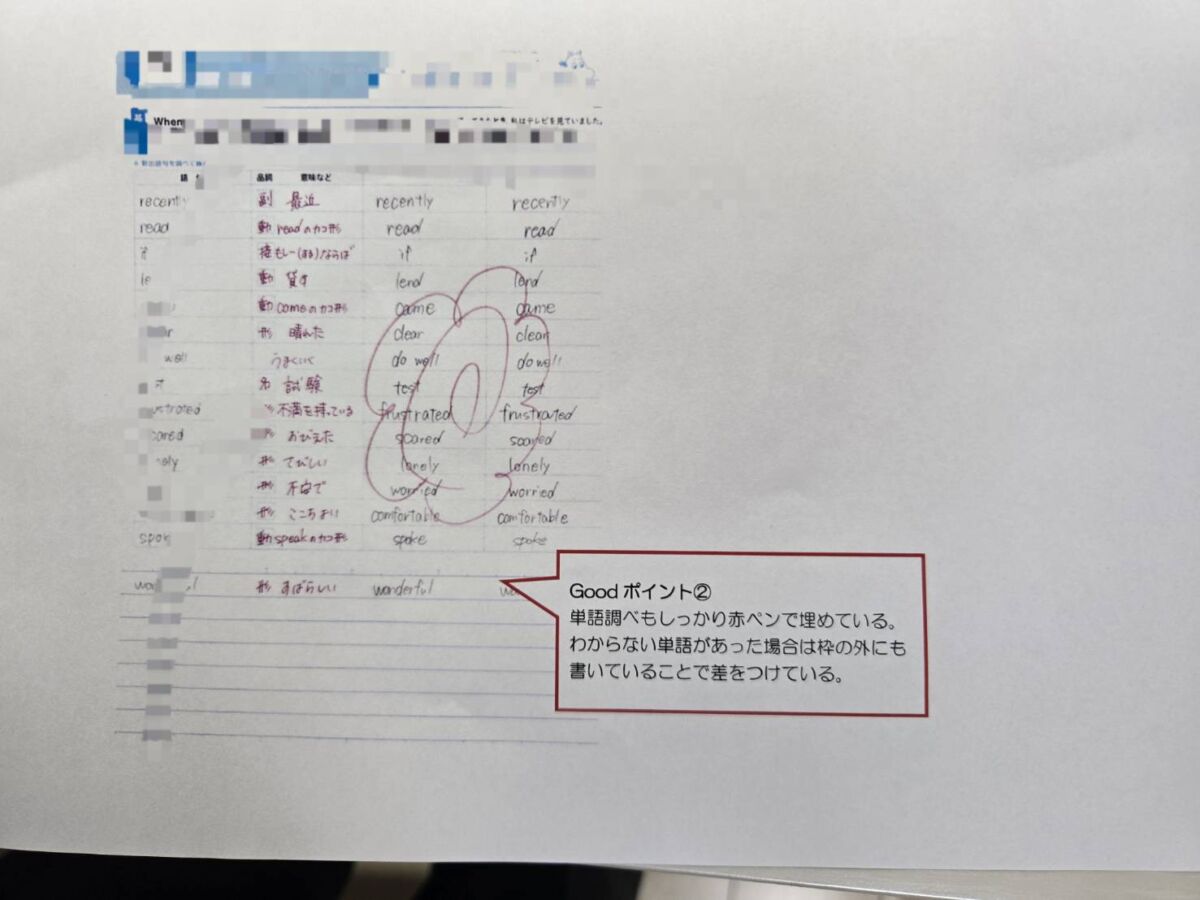 When
私はテレビを見ていました。
品詞 意味など
recently 副 最近 recently recently
read 動 readのカコ形 read read
if 接 もし〜(する)ならば if if
動 貸す lend lend
動 comeのカコ形 came came
形 晴れた clear clear
well うまくいく do well do well
名 試験 test test
不満を持っている frustrated frustrated
おびえた scared scared
形 さびしい lonely lonely
形 不安で worried worried
形 ここちよい comfortable comfortable
動 speakのカコ形 spoke spoke
形 すばらしい wonderful
Good ポイント②
単語調べもしっかり赤ペンで埋めている。
わからない単語があった場合は枠の外にも
書いていることで差をつけている。